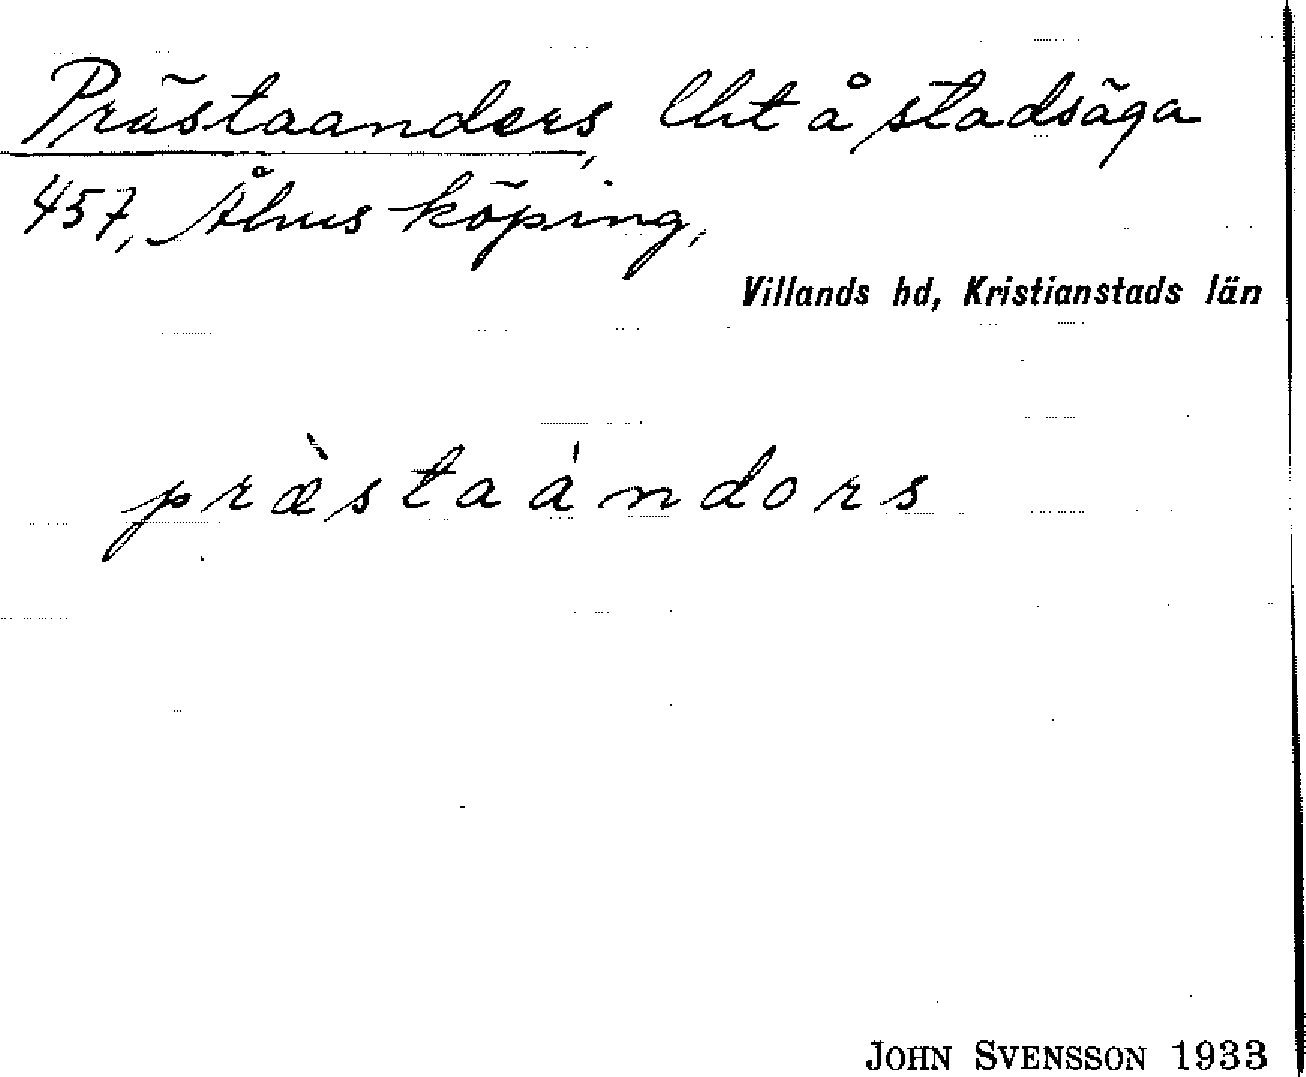 Prästaanders, lht å stadsäga
457, Åhus köping,
Villands hd, Kristianstads län
præ̀staándors
JOHN SVENSSON 1933